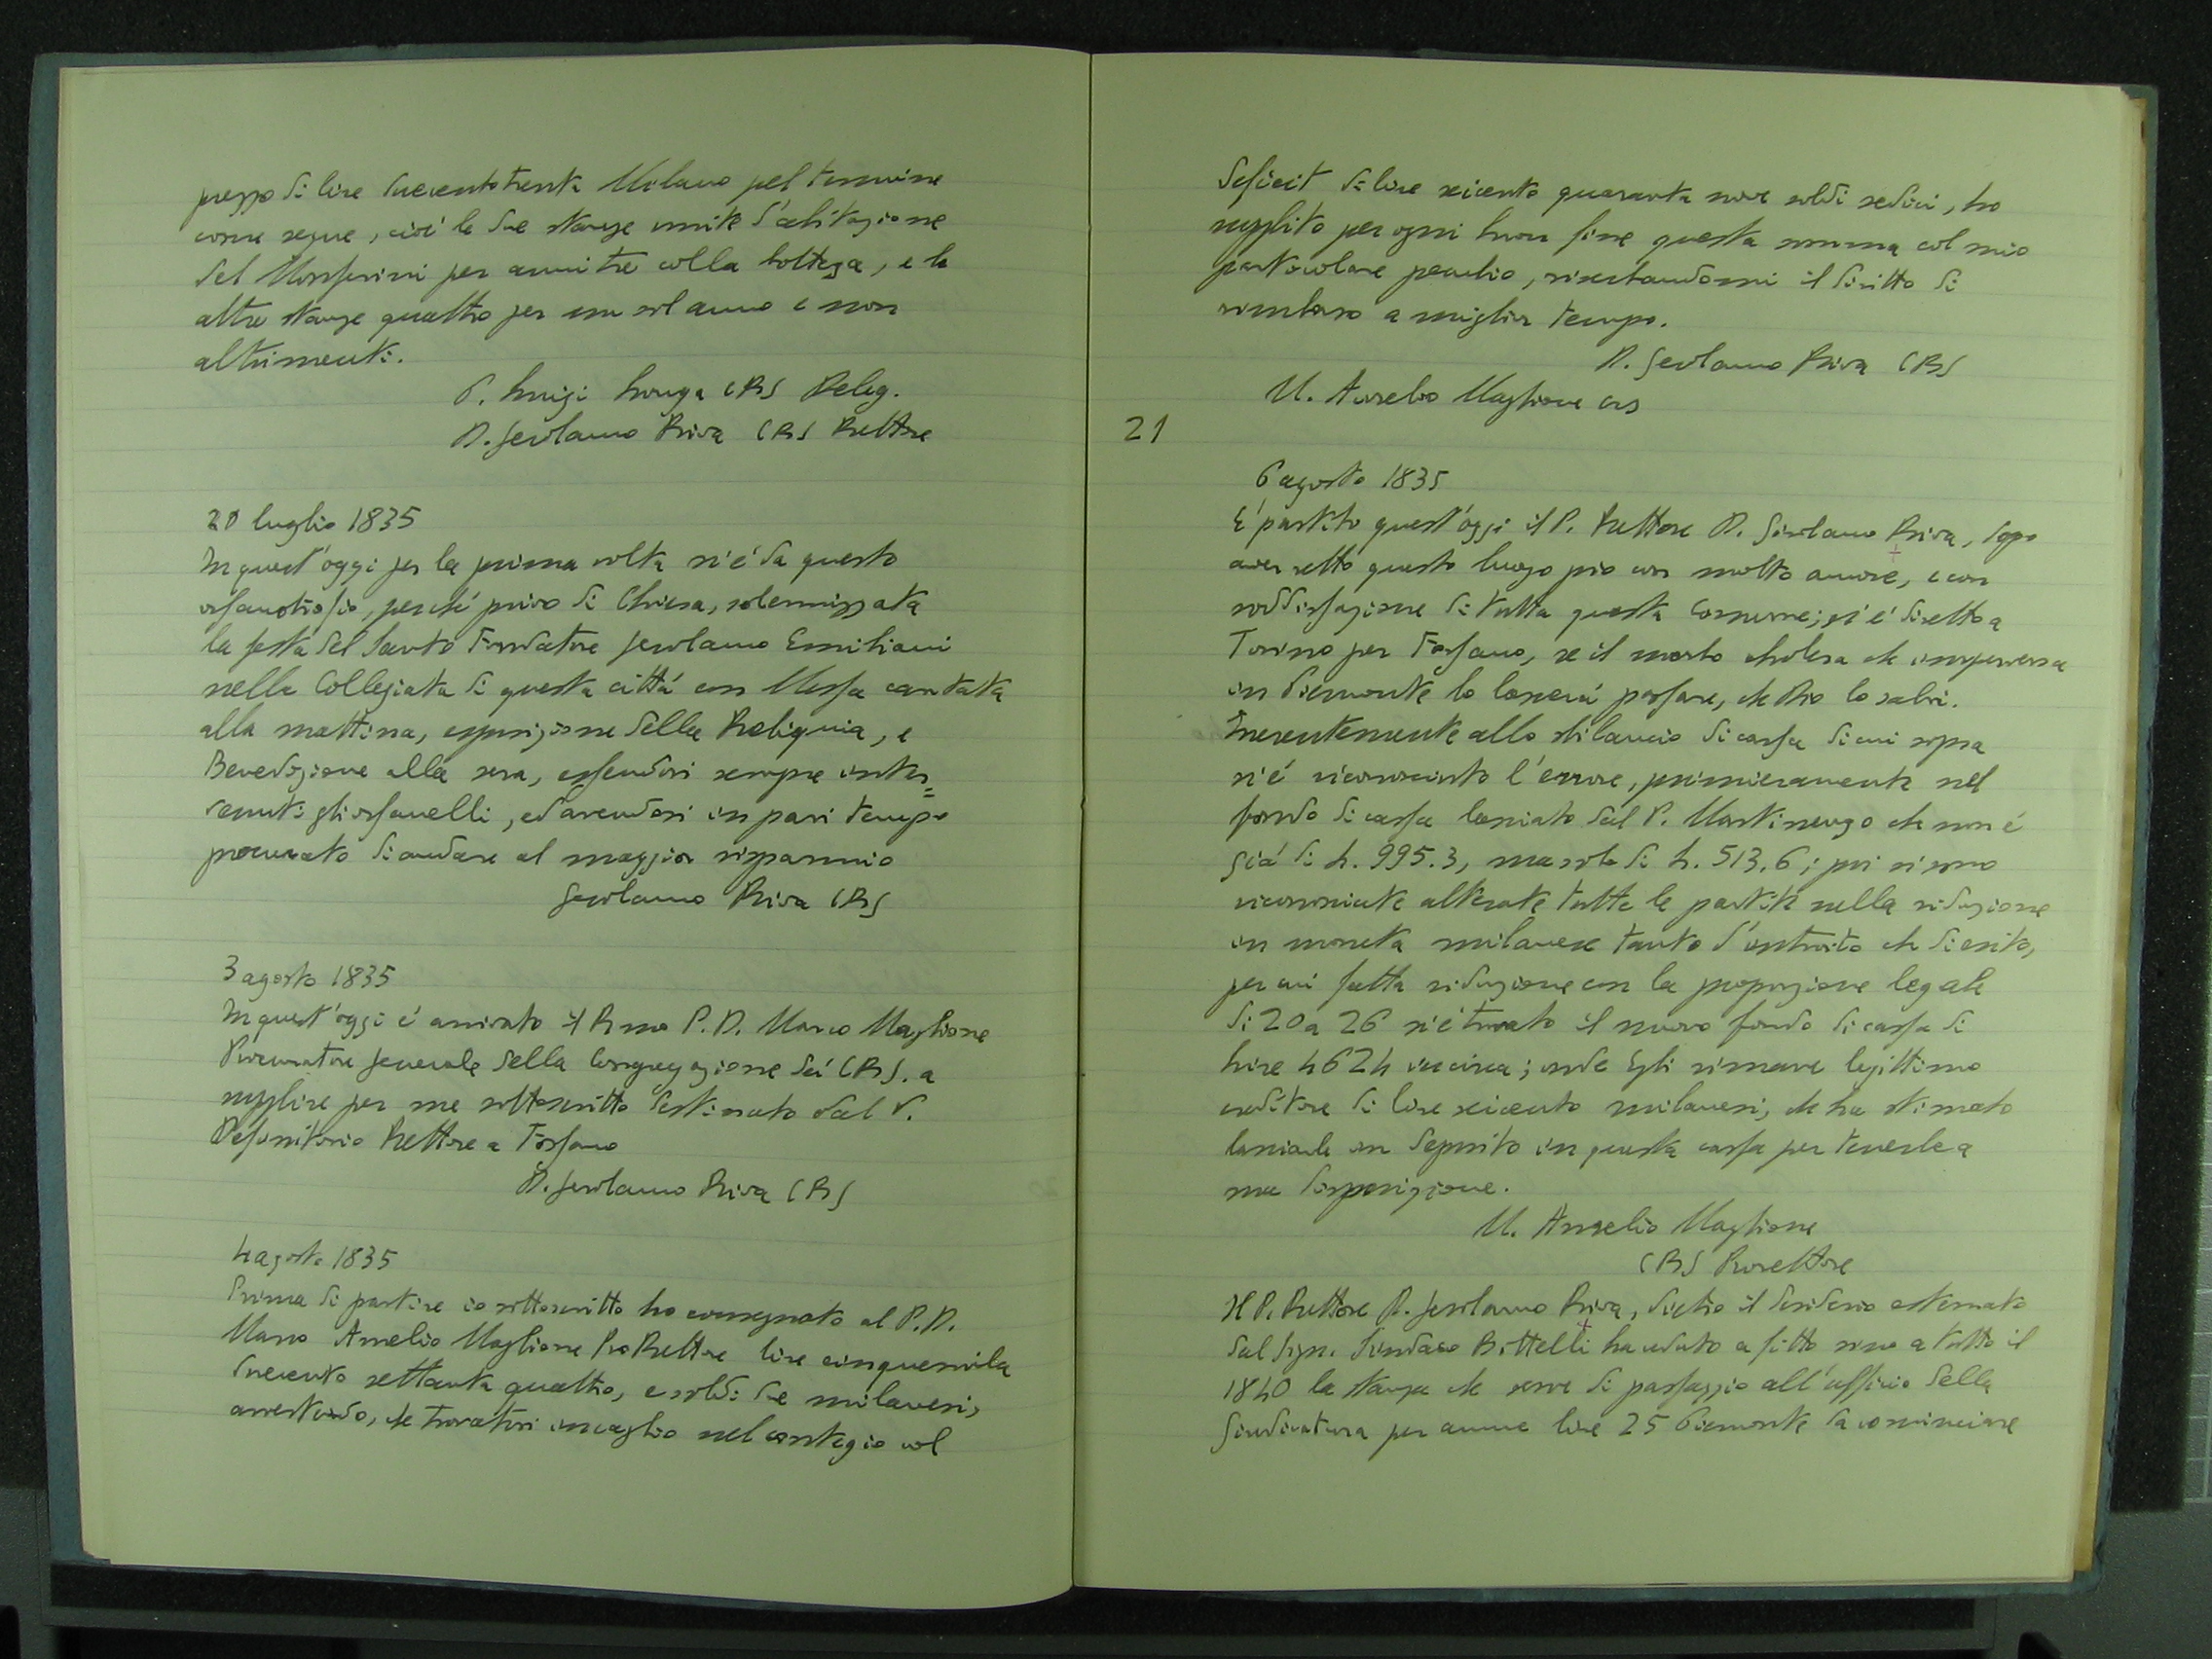 prezzo di lire duecentotrenta Milano pel termine
come segue, cioè le due stanze unite d'abitazione
del Monferini per anni tre colla bottega, e le
altre stanze quattro per un sol anno e non
altrimenti.
P. Luigi Longa CRS Deleg.
D. Gerolamo Riva CRS Rettore
20 luglio 1835
In quest'oggi per la prima volta si è da questo
orfanotrofio, perché privo di Chiesa, solennizzata
la festa del Santo Fondatore Gerolamo Emiliani
nella Collegiata di questa città con Messa cantata
alla mattina, esposizione della Reliquia, e
Benedizione alla sera, essendovi sempre inter=
venuti gli orfanelli, ed avendosi in pari tempo
procurato di andare al maggior risparmio
Gerolamo Riva CRS
3 agosto 1835
In quest'oggi è arrivato il R.mo P.D. Marco Maglione
Procuratore generale della Congregazione dei CRS. a
supplire per me sottoscritto destinato dal V.
Definitorio Rettore a Fossano
D. Gerolamo Riva CRS
4 agosto 1835
Prima di partire io sottoscritto ho consegnato al P.D.
Marco Aurelio Maglione ProRettore lire cinquemila
duecento settanta quattro, e soldi due milanesi,
avvertendo, che trovatosi incaglio nel conteggio col
deficit di lire seicento quaranta nove soldi sedici, ho
supplito per ogni buon fine questa somma col mio
particolare peculio, riserbandomi il diritto di
rimborso a miglior tempo.
D. Gerolamo Riva CRS
M. Aurelio Maglione crs
21
6 agosto 1835
È partito quest'oggi il P. Rettore D. Girolamo Riva, dopo
aver retto questo luogo pio con molto amore, e con
soddisfazione di tutta questa Comune; si è diretto a
Torino per Fossano, se il morbo cholera che imperversa
in Piemonte lo lascerà passare, che Dio lo salvi.
Inerentemente allo sbilancio di cassa di cui sopra
si è riconosciuto l'errore, primieramente nel
fondo di cassa lasciato dal P. Martinengo che non è
già di L. 995.3, ma solo di L. 513.6; poi si sono
riconosciute alterate tutte le partite nella riduzione
in moneta milanese tanto d'introito che di esito,
per cui fatta riduzione con la proporzione legale
di 20 a 26 si è trovato il nuovo fondo di cassa di
Lire 4624 in circa; onde Egli rimane legittimo
creditore di lire seicento milanesi, che ha stimato
lasciarle in deposito in questa cassa per tenerle a
sua disposizione.
M. Aurelio Maglione
CRS Prorettore
Il P. Rettore D. Gerolamo Riva, dietro il desiderio esternato
dal Sign. Sindaco Bottelli ha ceduto a fitto sino a tutto il
1840 la stanza che serve di passaggio all'ufficio della
Giudicatura per annue lire 25 Piemonte da cominciare